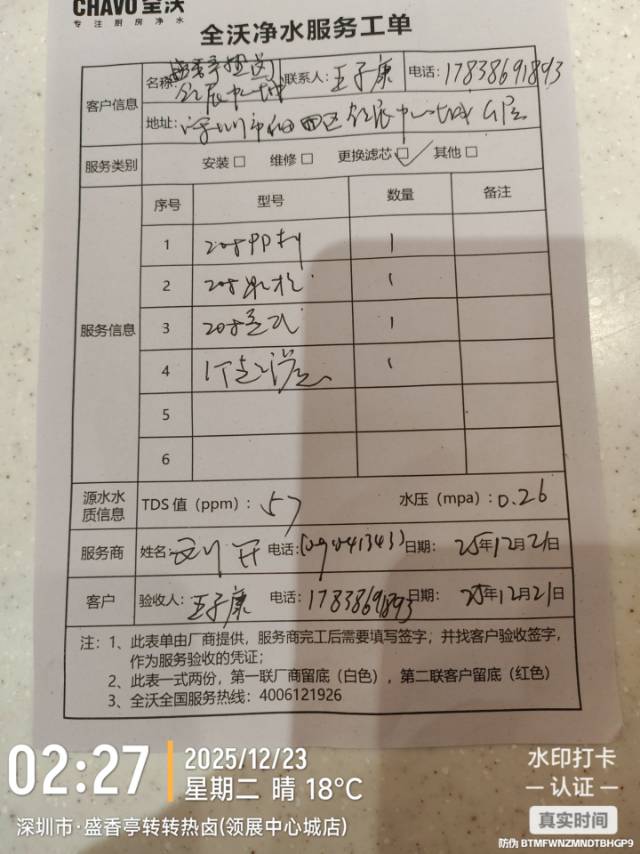 CHAVO 全沃
专注厨房净水
全沃净水服务工单
客户信息
名称: 盛香亭转转
领展中心城
联系人: 王子康
电话: 17838691893
地址: 深圳市福田区领展中心城G层
服务类别
安装□ 维修□ 更换滤芯☑ 其他□
服务信息
序号 型号 数量 备注
1 20寸PP 1
2 20寸 1
3 20寸 1
4 1
5
6
源水水质信息
TDS 值（ppm）: 57
水压（mpa）: 0.26
服务商
姓名:
电话:
日期: 25年12月21日
客户
验收人: 王子康
电话: 17838691893
日期: 25年12月21日
注: 1、此表单由厂商提供，服务商完工后需要填写签字；并找客户验收签字，
作为服务验收的凭证；
2、此表一式两份，第一联厂商留底（白色），第二联客户留底（红色）
3、全沃全国服务热线: 4006121926
02:27
2025/12/23
星期二 晴 18°C
深圳市·盛香亭转转热卤(领展中心城店)
水印打卡
认证
真实时间
防伪 BTMFWNZMNDTBHGP9